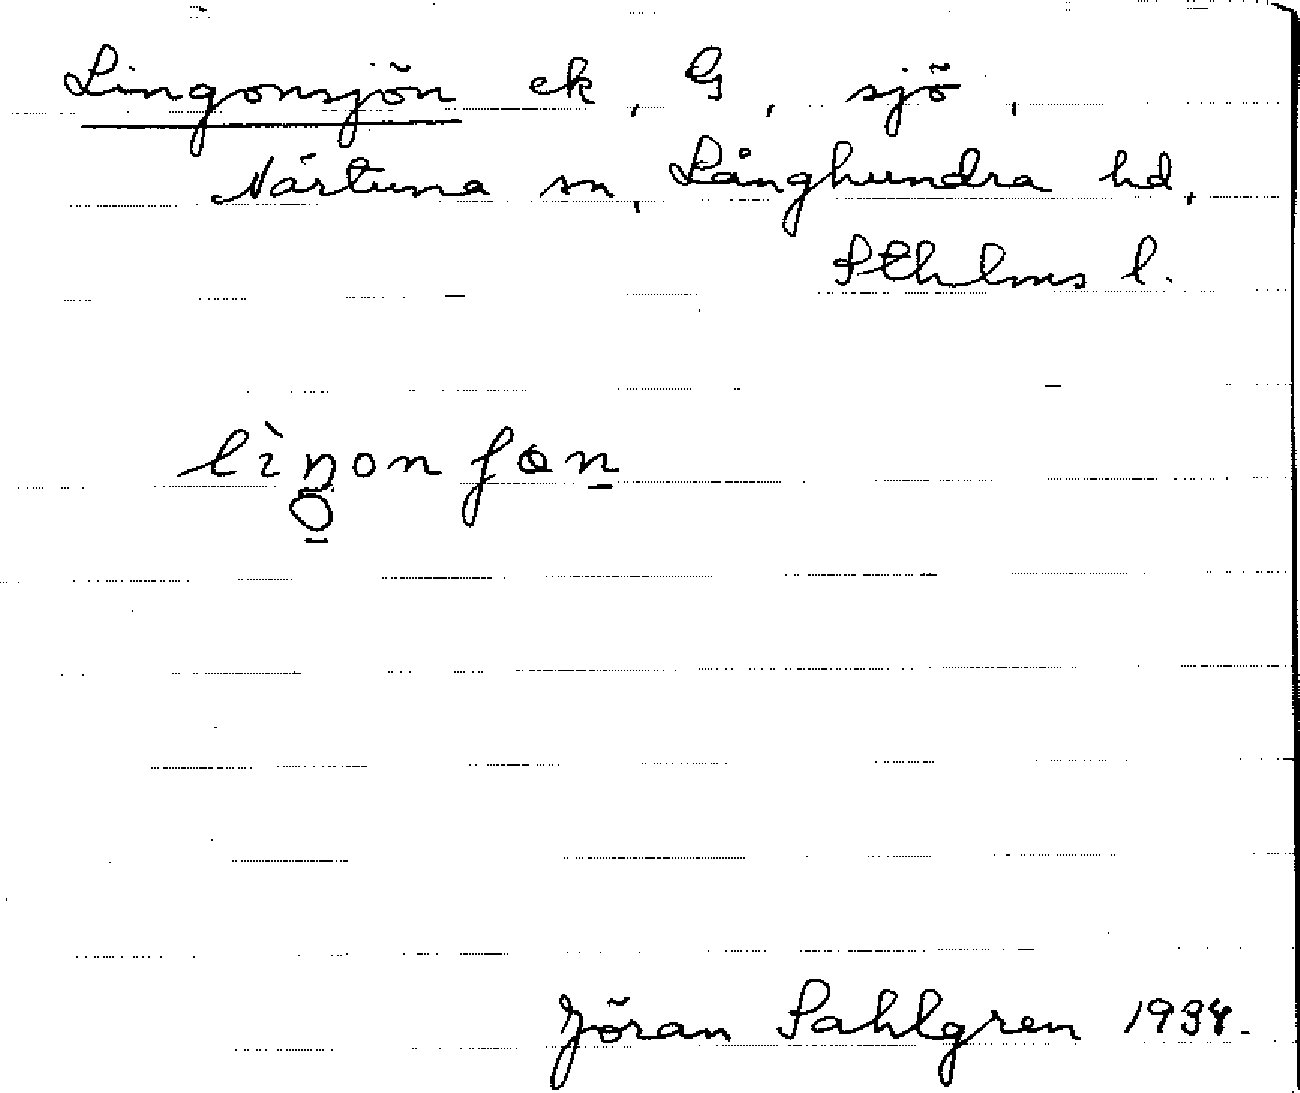 Lingonsjön ek, G, sjö,
Närtuna sn, Långhundra hd.
Sthlms l.
lìŋon
Jöran Sahlgren